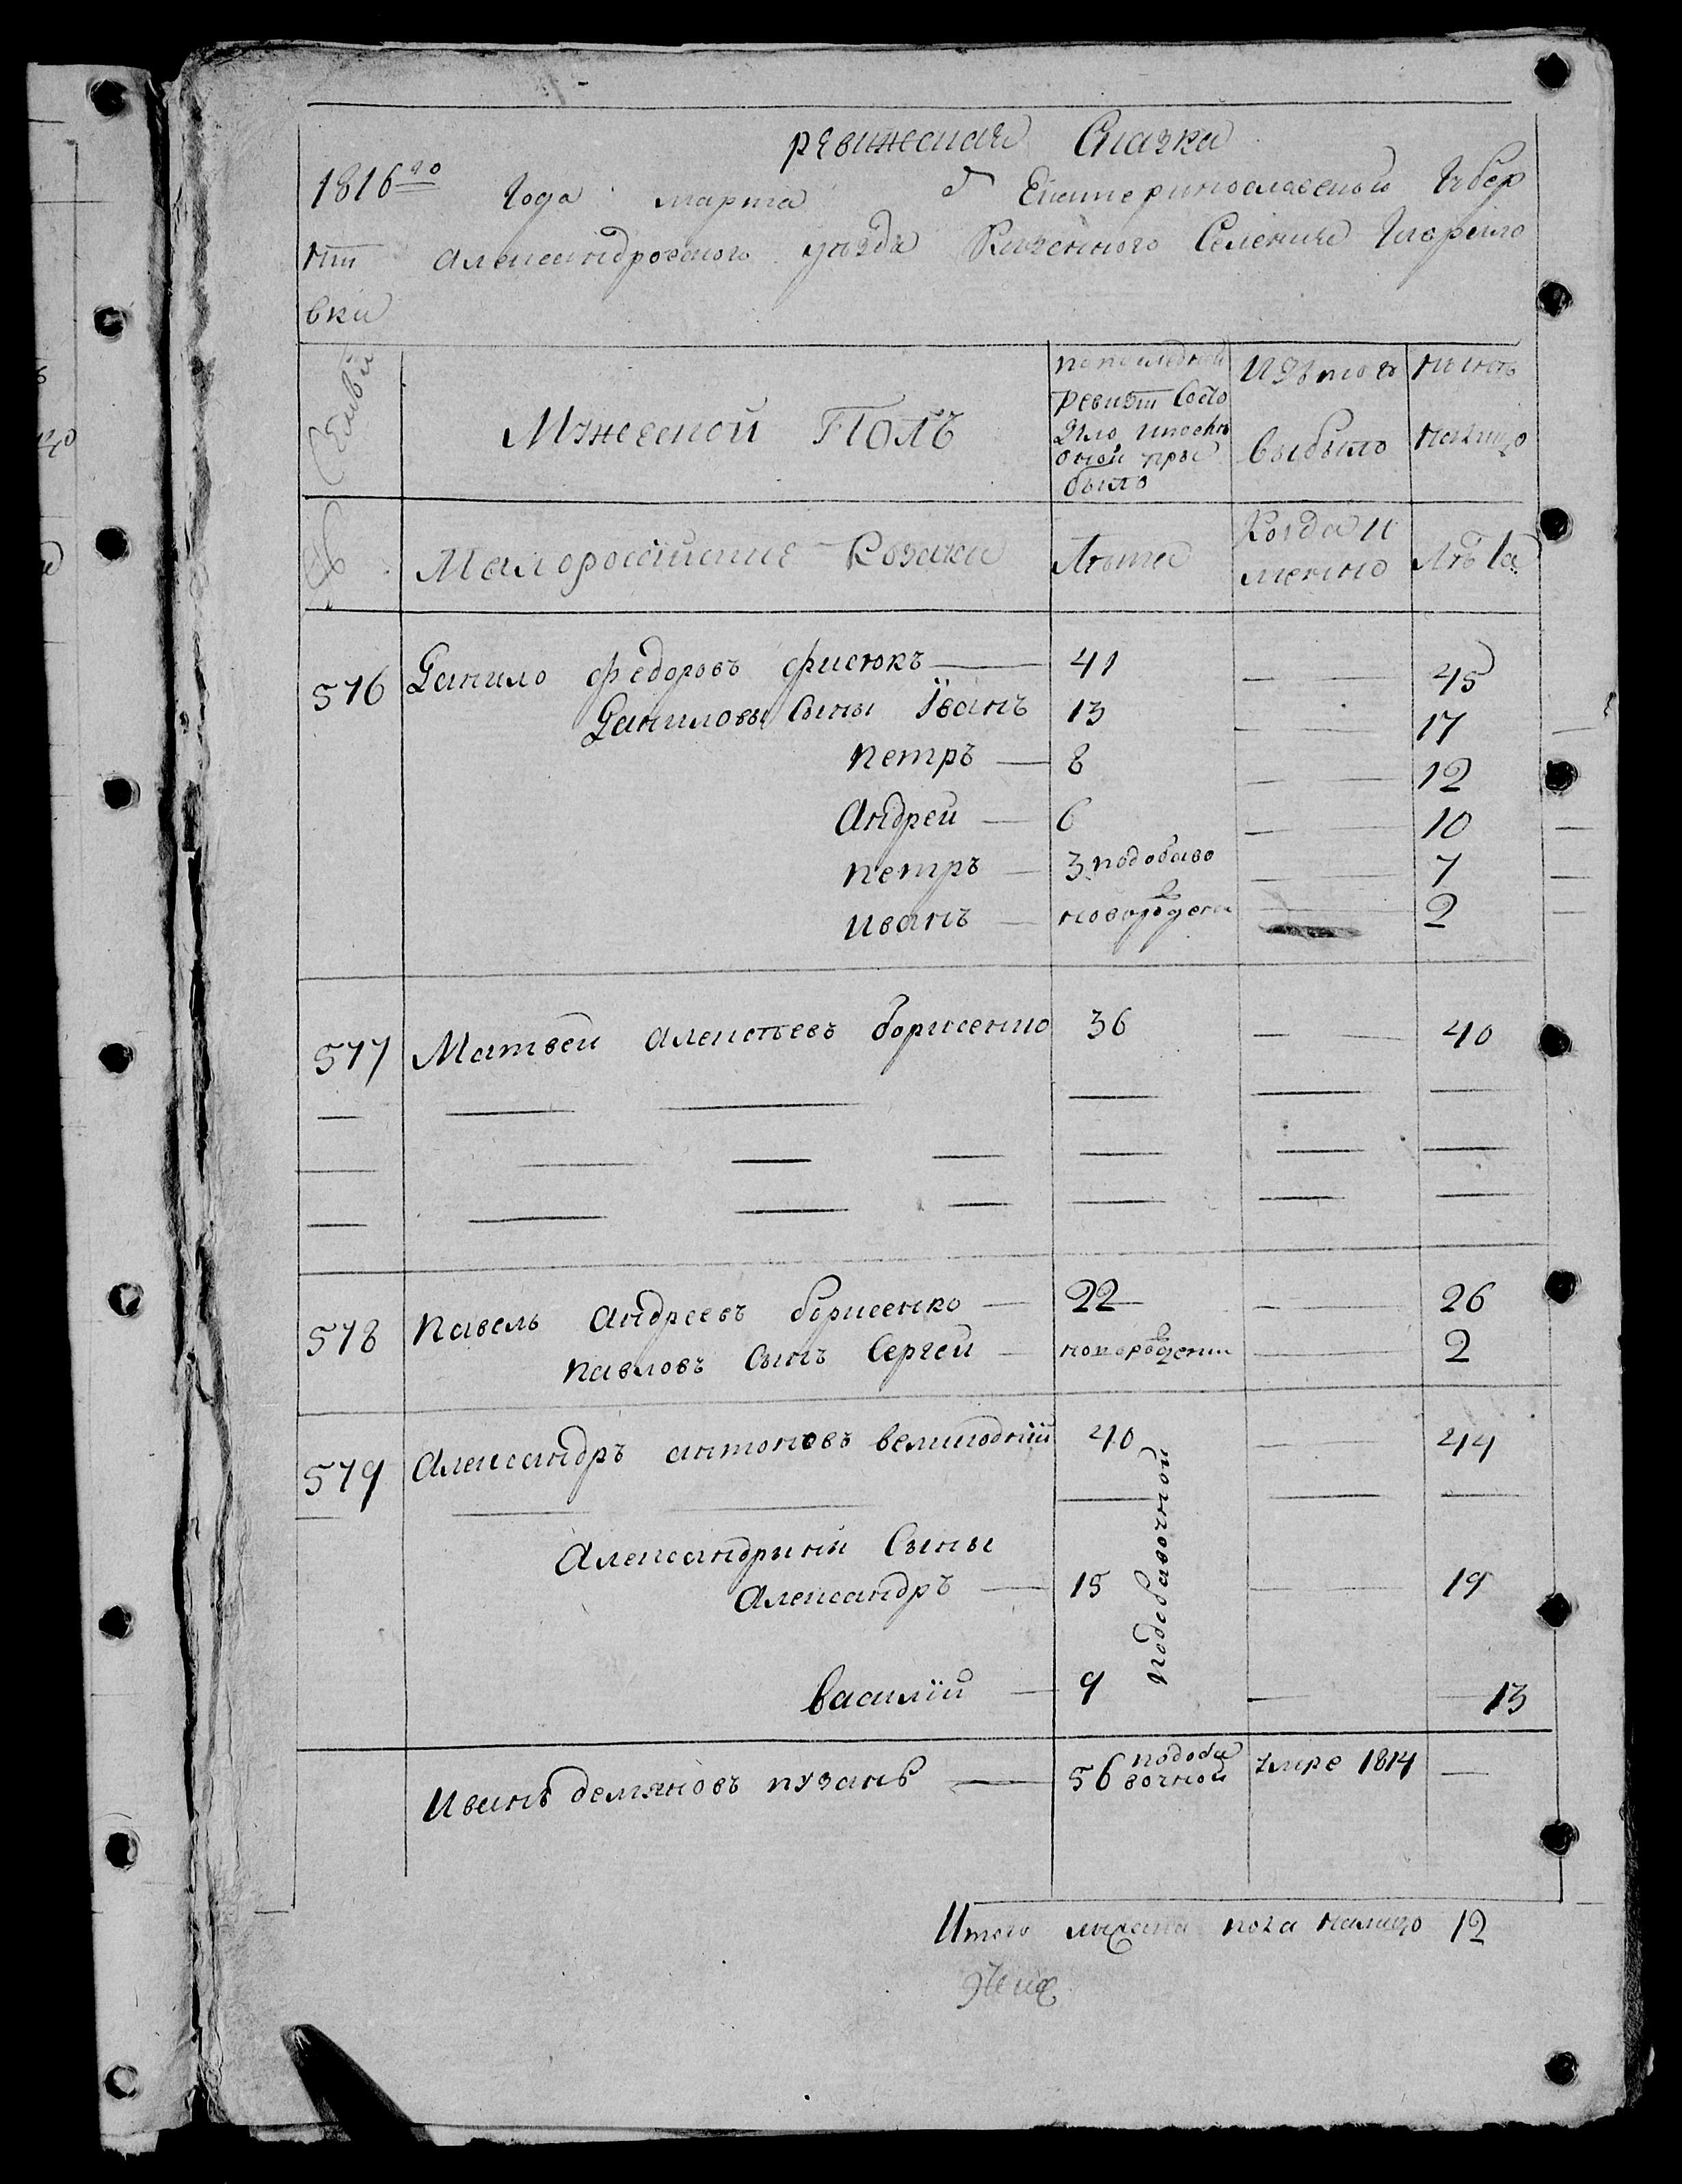 ревижская Сказка
1816го Года марта Екатеринославской Губер
нии александровского уезда Казенного Селения Гаврило
вки
Семьи
Мужеской Полъ
попоследней
ревизіи Состо
яло ипослѣ
оной при
было
Изътого
выбыло
нынѣ
налицо
Малороссійские Козаки
Лѣта
Когда и
менно
Лѣта
576 Данило федоровъ фисюкъ 41 — 45
Даниловы Сыны Іванъ 13 — 17
петръ — 8 — 12
Андрей — 6 — 10
петръ — 3 подобаво — 7
иванъ — новорожден — 2
577 Матвей алексѣевъ борисенко 36 — 40
578 павелъ андреевъ борисенко — 22 — 26
павловъ Сынъ Сергей — новорожденн — 2
579 александръ антоновъ великодній 40 — 44
подобавочной
Александрыны Сыны
Александръ — 15 — 19
василій — 9 — 13
Иванъ демяновъ пузанъ — 56 подоба
вочной умре 1814 —
Итого налицо 12